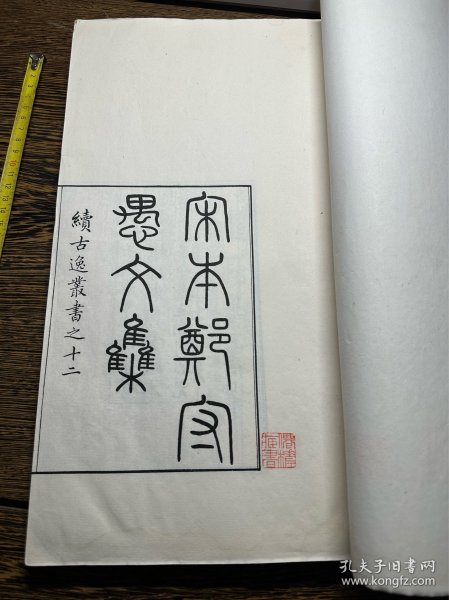 宋本鄭守
愚文集
續古逸叢書之十二
孔夫子旧书网
www.kongfz.com